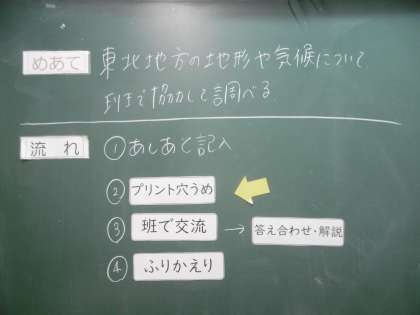 めあて 東北地方の地形や気候について
班で協力して調べる
流れ ①あしあと記入
②プリント穴うめ
③班で交流 → 答え合わせ・解説
④ふりかえり